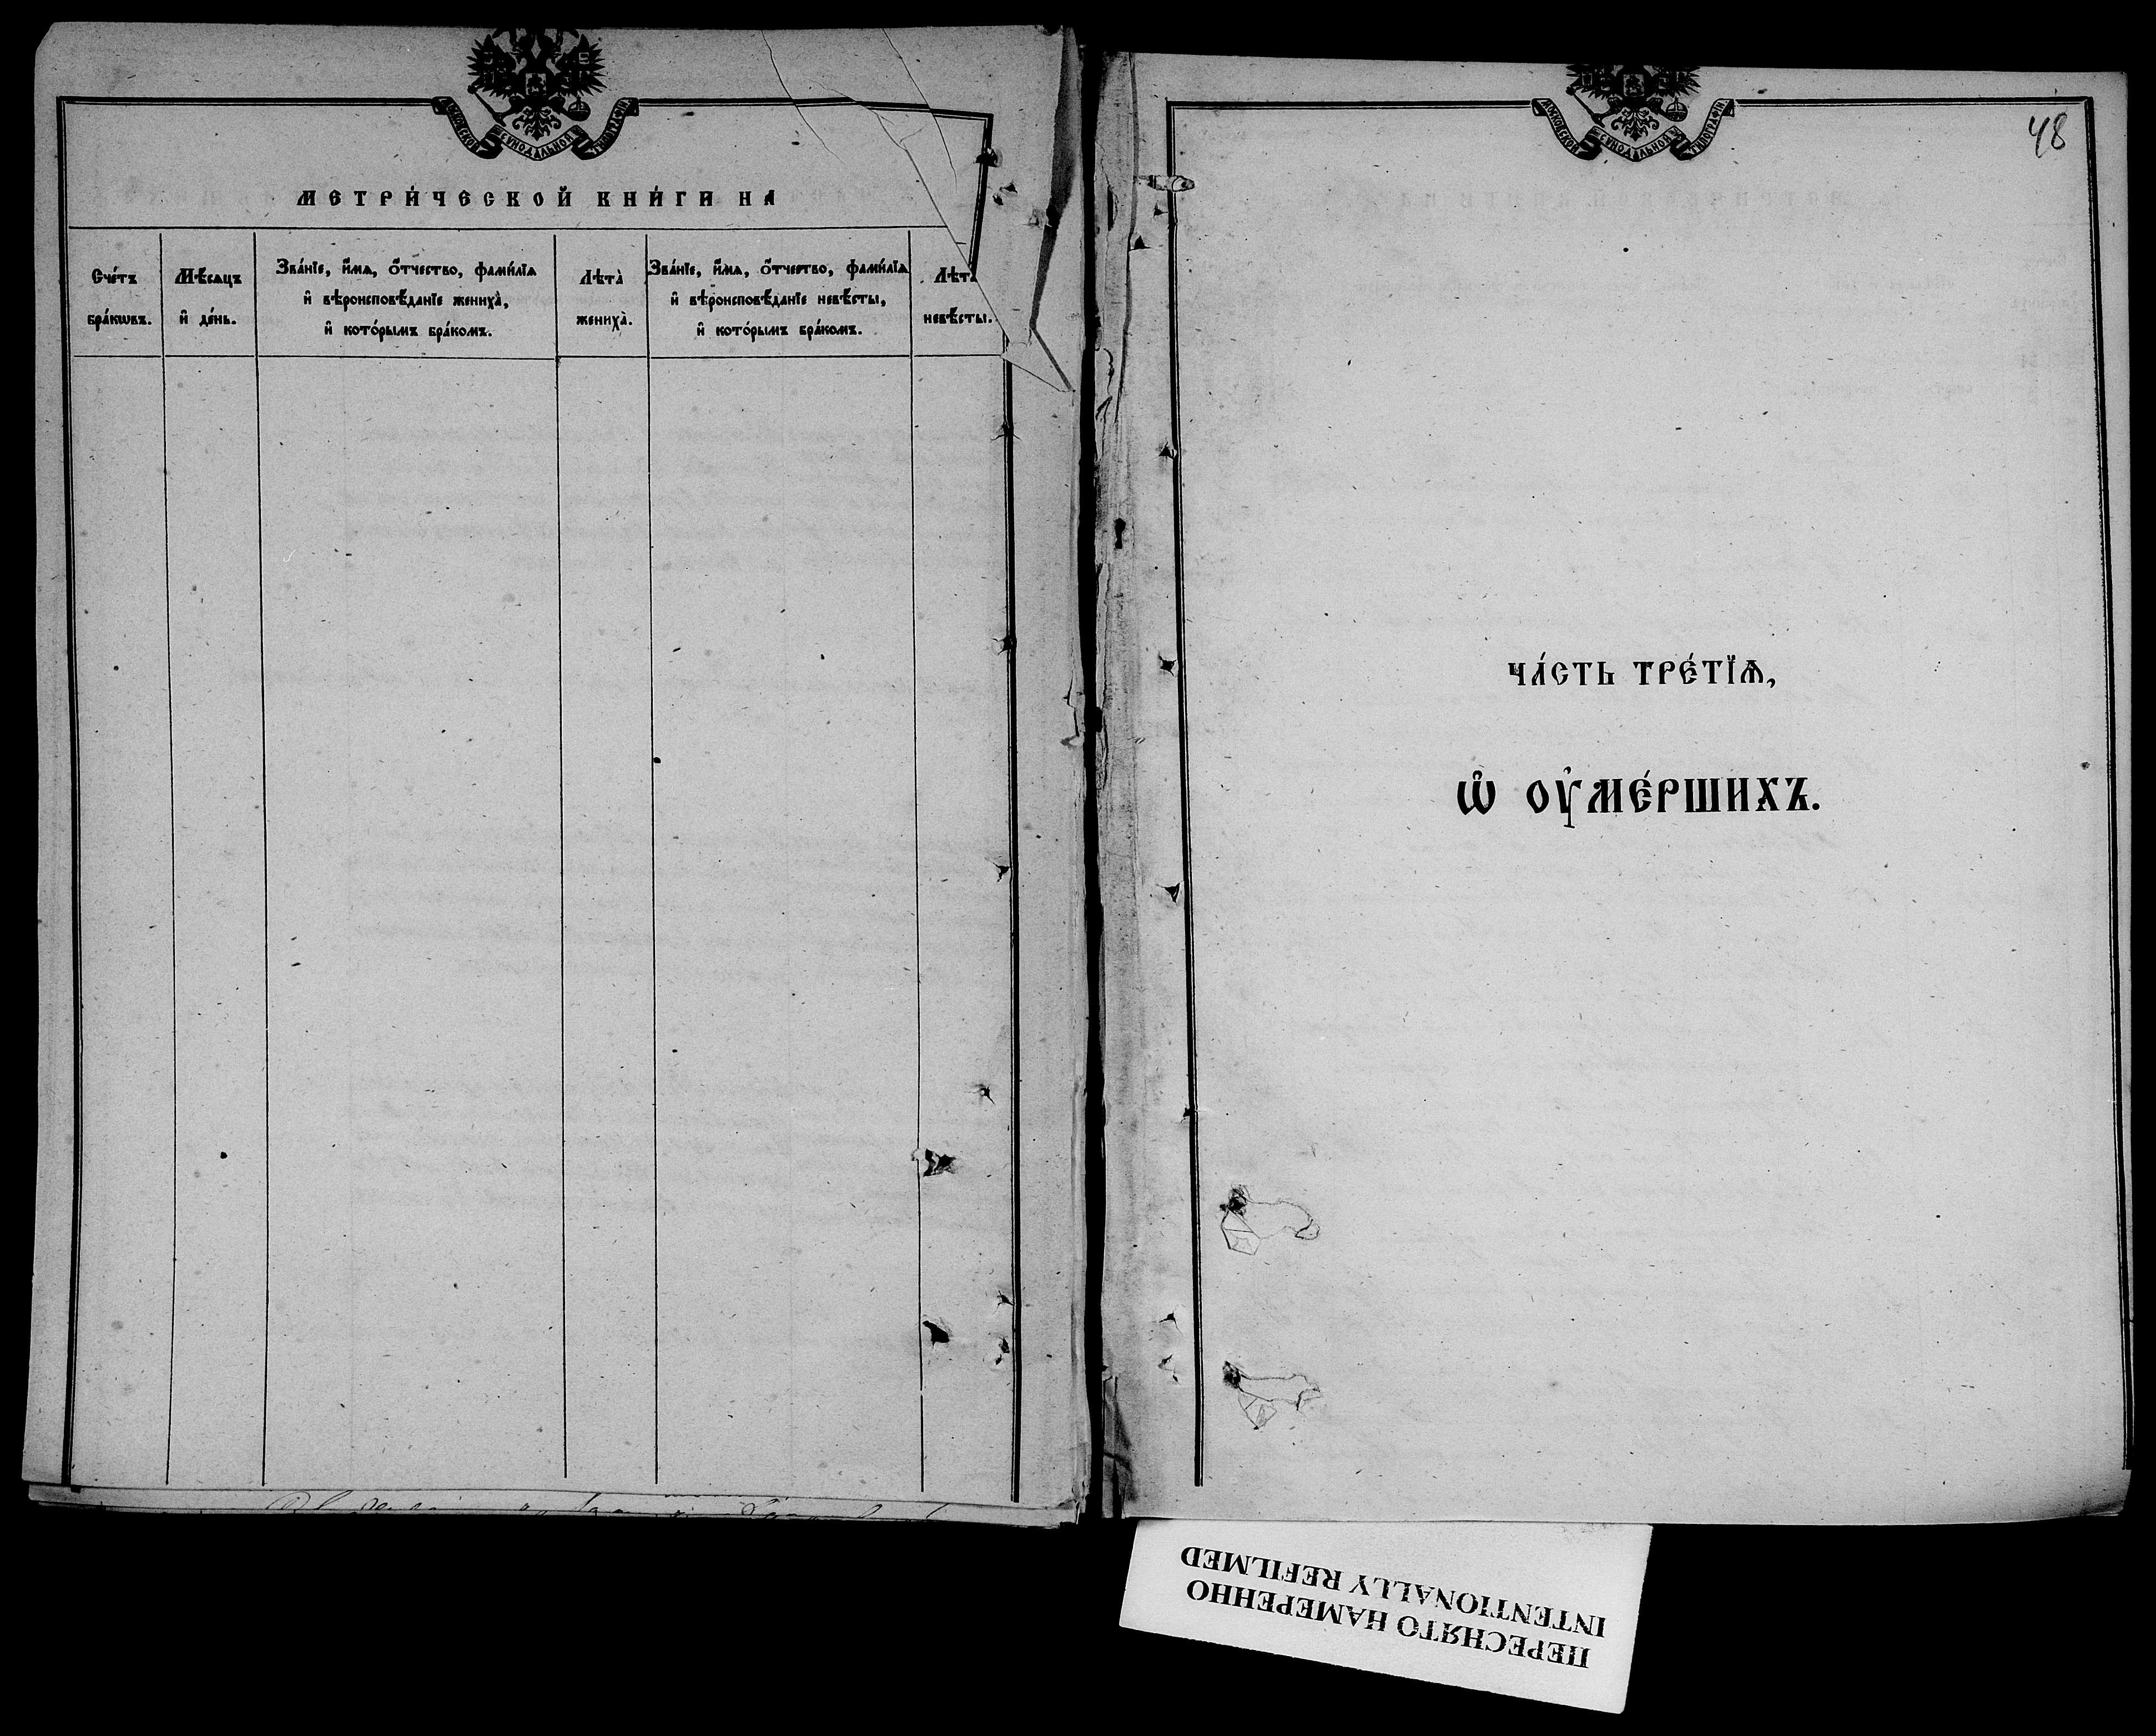 МОСКОВСКОЙ СѴНОДАЛЬНОЙ ТИПОГРАФІИ
МЕТРИ́ЧЕСКОЙ КНИ́ГИ НА
Сче́тъ бра́кѡвъ.
Мѣ́сѧцъ и҆ де́нь.
Зва́нїе, и҆́мѧ, ѻ҆́тчество, фами́лїѧ
и҆ вѣроисповѣ́данїе жениха̀,
и҆ кото́рымъ бра́комъ.
Лѣта̀ жениха̀.
Зва́нїе, и҆́мѧ, ѻ҆́тчество, фами́лїѧ
и҆ вѣроисповѣ́данїе невѣ́сты,
и҆ кото́рымъ бра́комъ.
Лѣта̀ невѣ́сты.
МОСКОВСКОЙ СѴНОДАЛЬНОЙ ТИПОГРАФІИ
48
ЧА́СТЬ ТРЕ́ТЇѦ,
Ѡ҆ ОУ҆МЕ́РШИХЪ.
ПЕРЕСНЯТО НАМЕРЕННО
INTENTIONALLY REFILMED